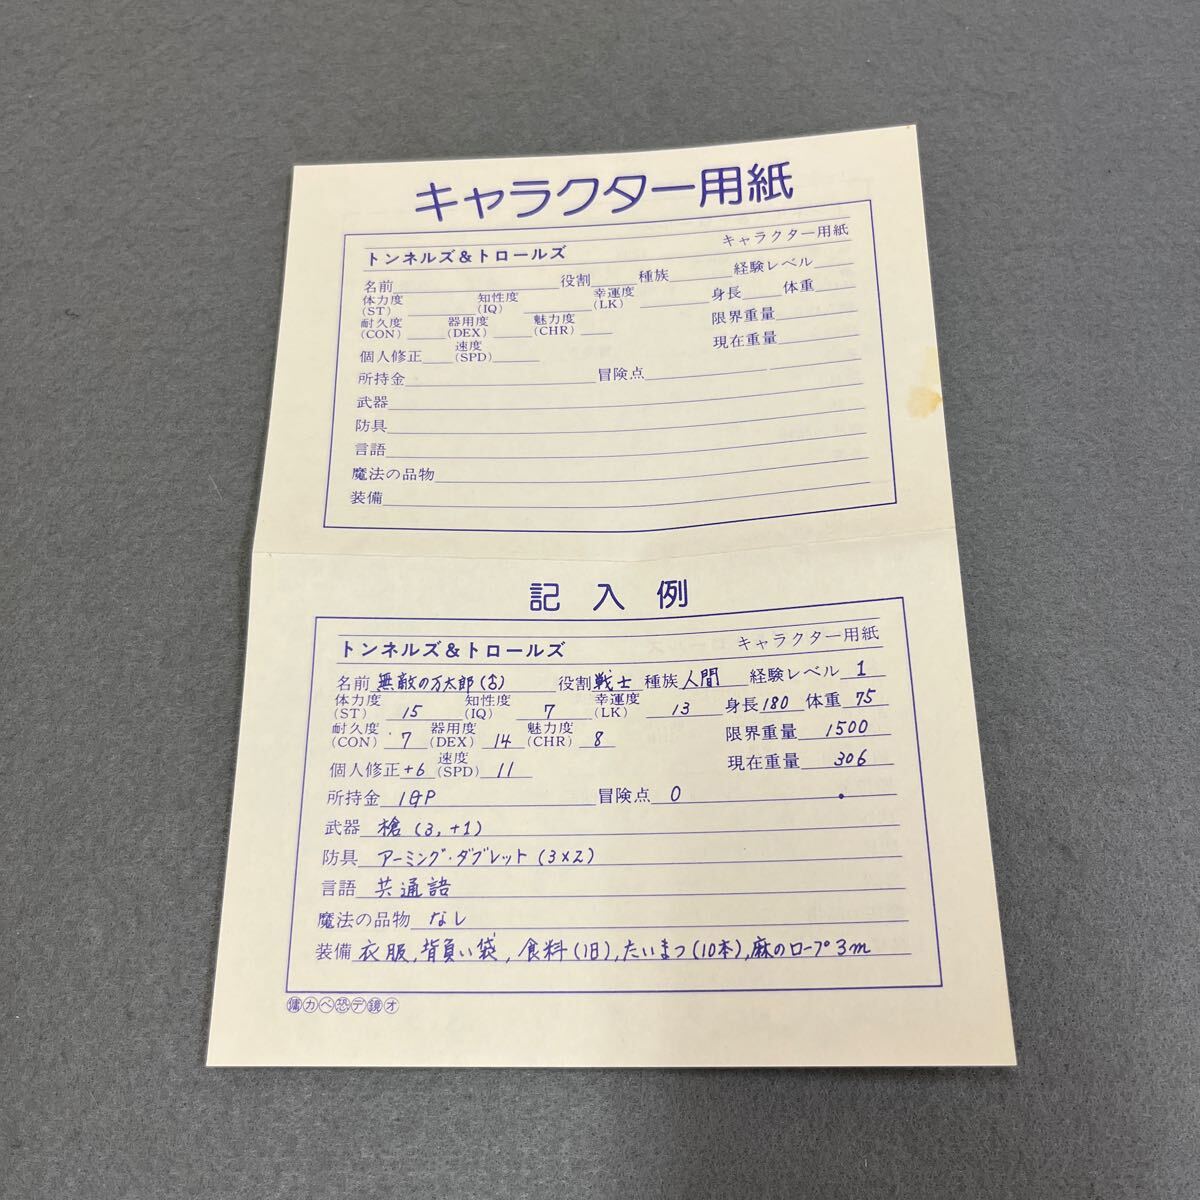 キャラクター用紙
トンネルズ&トロールズ キャラクター用紙
名前 役割 種族 経験レベル
体力度(ST) 知性度(IQ) 幸運度(LK) 身長 体重
耐久度(CON) 器用度(DEX) 魅力度(CHR) 限界重量
個人修正 速度(SPD) 現在重量
所持金 冒険点
武器
防具
言語
魔法の品物
装備
記入例
トンネルズ&トロールズ キャラクター用紙
名前 無敵の万太郎(古) 役割 戦士 種族 人間 経験レベル 1
体力度(ST) 15 知性度(IQ) 7 幸運度(LK) 13 身長 180 体重 75
耐久度(CON) 7 器用度(DEX) 14 魅力度(CHR) 8 限界重量 1500
個人修正 +6 速度(SPD) 11 現在重量 306
所持金 1GP 冒険点 0
武器 槍(3,+1)
防具 アーミング・ダブレット(3×2)
言語 共通語
魔法の品物 なし
装備 衣服,背負い袋,食料(1日),たいまつ(10本),麻のロープ3m
傭カベ恐デ鏡オ